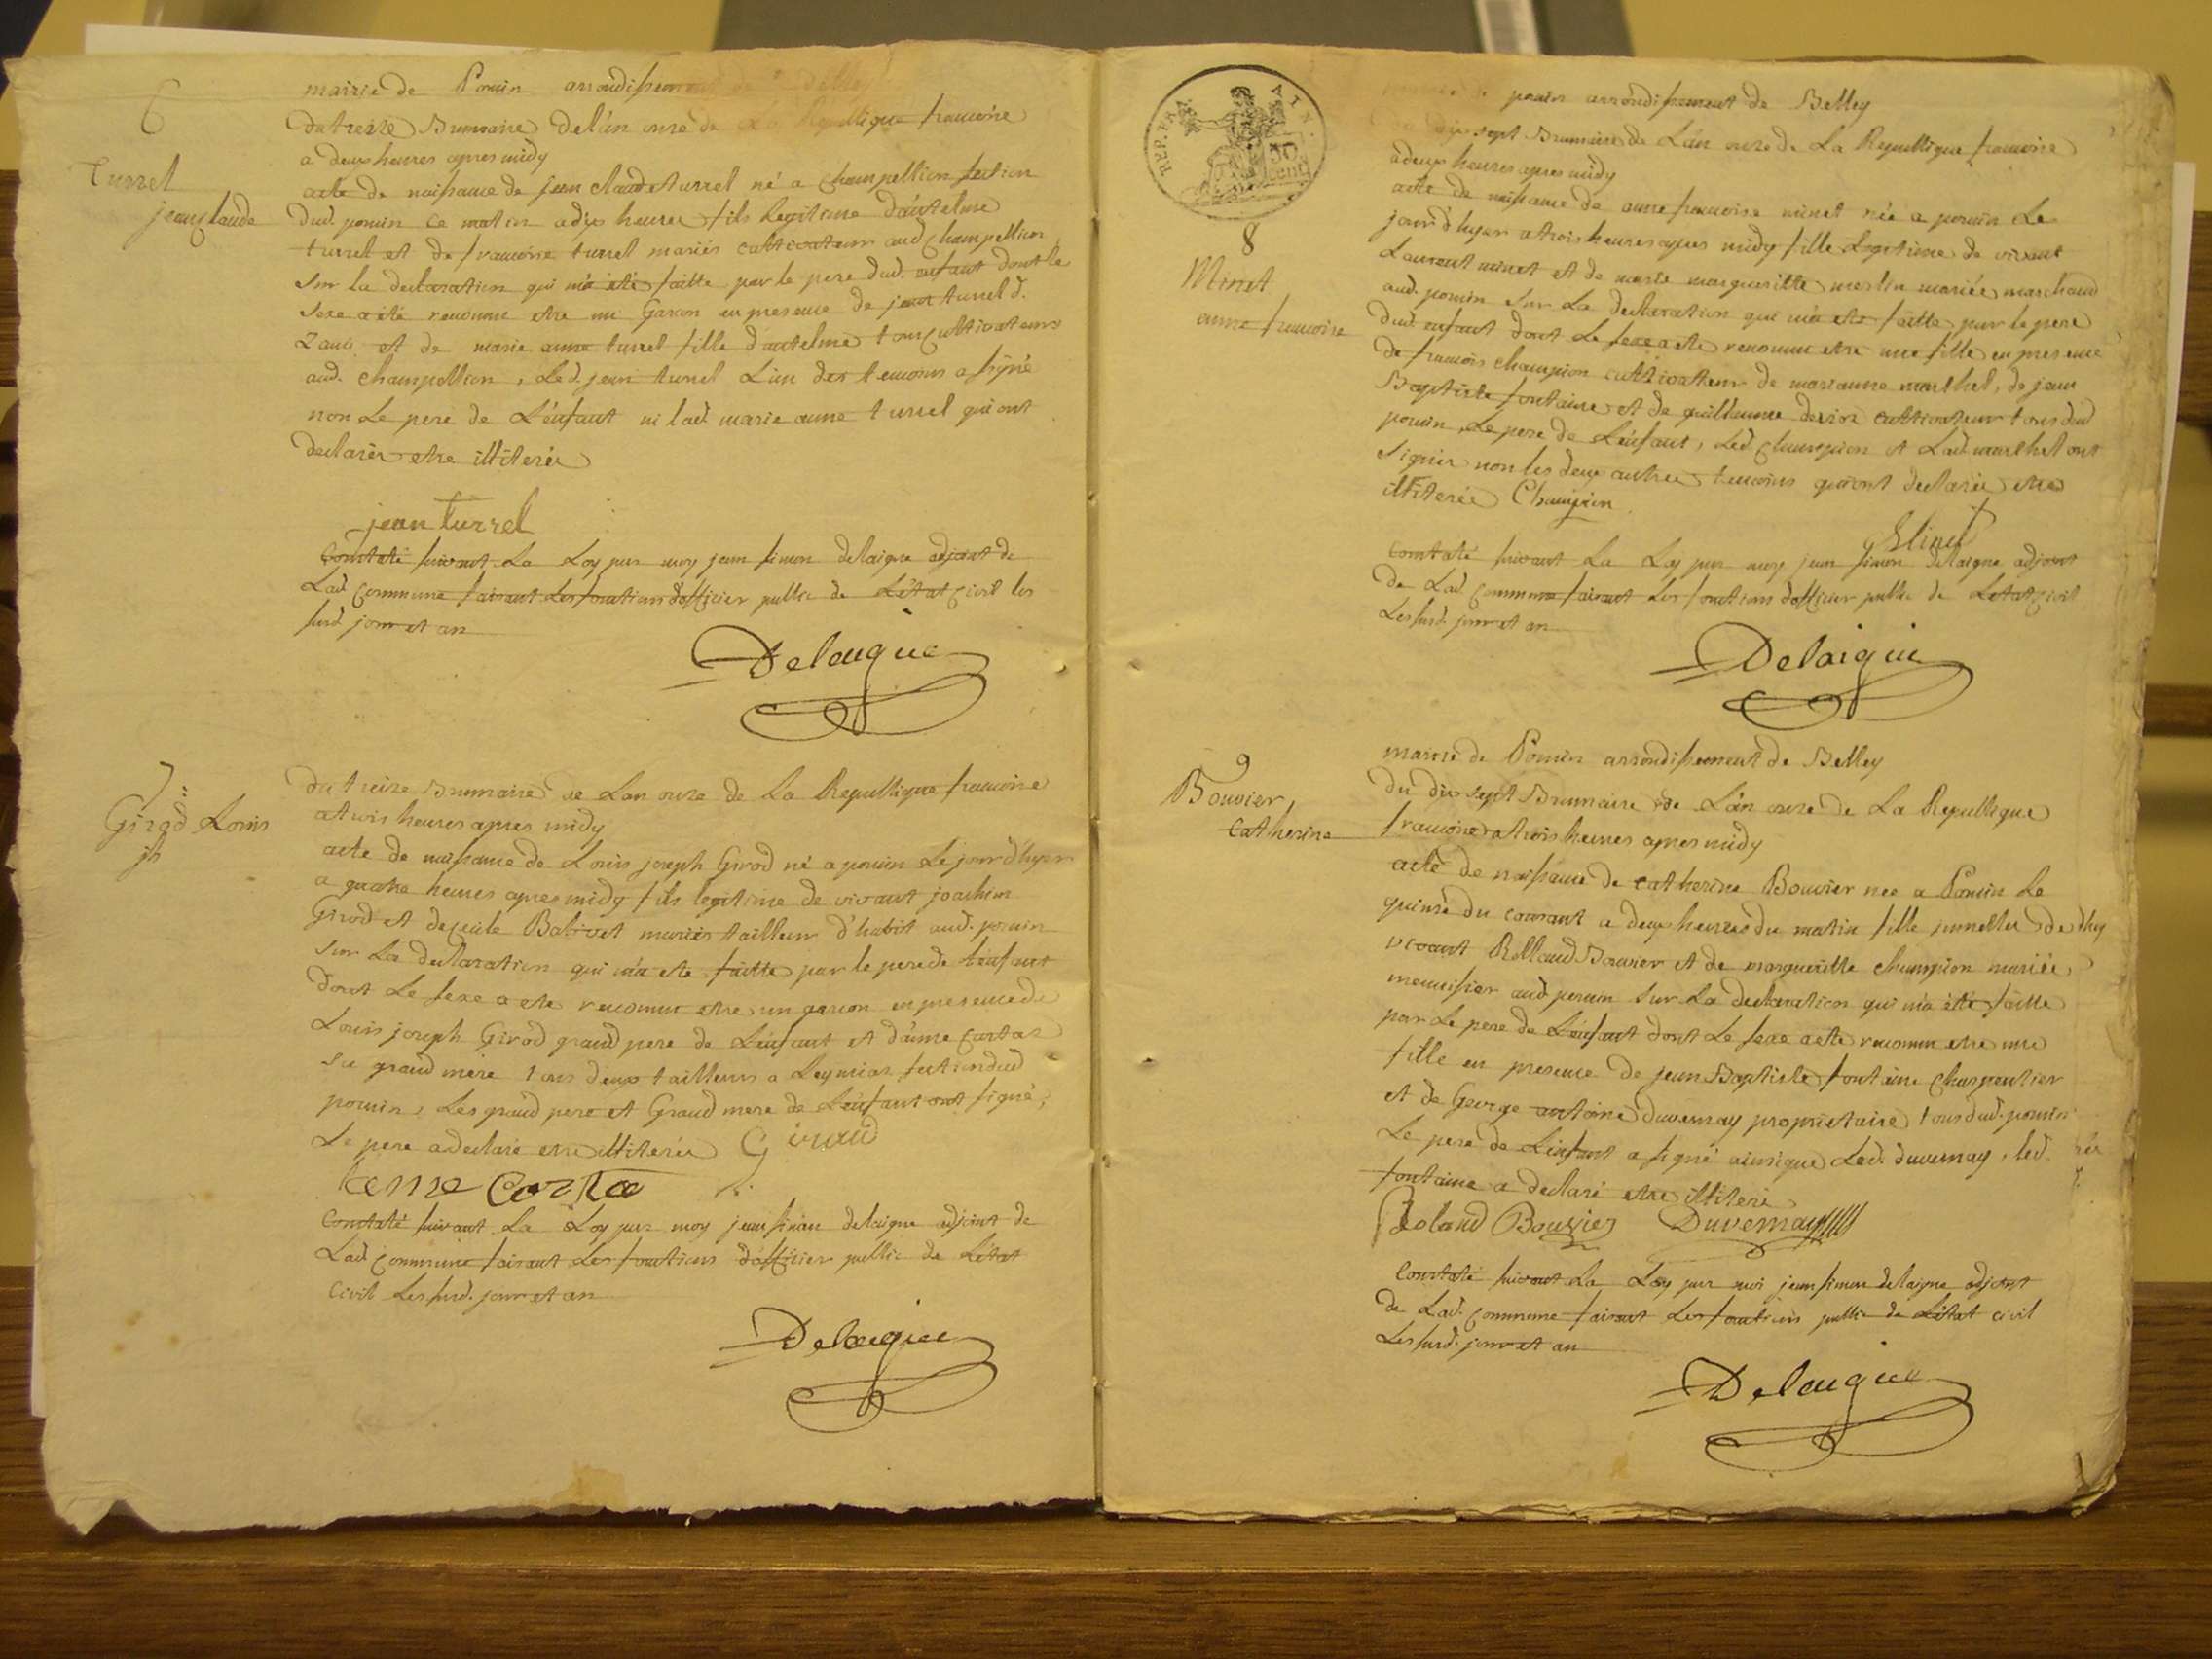 6
Turrel
jean claude
mairie de Poncin arrondissement de Belley
du treize Brumaire de l'an onze de la Republique francoise
a deux heures apres midy
acte de naissance de jean claude turrel né a champellion section
dud. poncin ce matin a dix heures fils legitime d'antelme
turrel et de francoise turrel mariés cultivateurs aud champellion
sur la declaration qui m'a eté faitte par le pere dud. enfant dont le
sexe a été reconnu etre un Garcon en presence de jean turrel d.
et de marie anne turrel fille d'antelme tous cultivateurs
aud. champellion, Led. jean turrel L'un des temoins a signé
non Le pere de L'enfant ni lad. marie anne turrel qui ont
declarés etre illiterés
jean turrel
Constaté suivant La Loy par moy jean simon delaigue adjoint de
Lad commune faisant Les fonctions d'officier public de L'état civil les
susd. jour et an
Delaigue
7
Girod Louis
jh
du treize Brumaire de Lan onze de La Republique francoise
a trois heures apres midy
acte de naissance de Louis joseph Girod né a poncin Le jour d'hyer
a quatre heures apres midy fils legitime de vivant joachim
Girod et de cecile Balivet mariés tailleur d'habit aud. poncin
sur La declaration qui m'a ete faitte par le pere de l'enfant
dont Le sexe a ete reconnu etre un garcon en presence de
Louis joseph Girod grand pere de L'enfant et d'anne
sa grand mere tous deux tailleurs a Leymiat section dud
poncin, Les grand pere et Grand mere de L'enfant ont signé,
Le pere a declaré etre illiteré
Constaté suivant La Loy par moy jean simon delaigue adjoint de
Lad commune faisant Les fonctions d'officier public de L'état
civil Les susd. jour et an
Delaigue
REP. FRA. AIN.
50 cent
8
Minet
anne francoise
poncin arrondissement de Belley
dix sept Brumaire de L'an onze de La Republique francoise
a deux heures apres midy
acte de naissance de anne francoise minet née a poncin Le
jour d'hyer a trois heures apres midy fille Legitime de vivant
Laurent minet et de marie margueritte merlin mariés marchand
aud. poncin sur La declaration qui m'a ete faitte par le pere
dud. enfant dont Le sexe a ete reconnu etre une fille en presence
de francois champion cultivateur de marianne marthel, de jean
Baptiste fontaine et de guillaume cultivateur tous dud
poncin, Le pere de L'enfant, Led. champion et Lad. marthel ont
signés non les deux autres temoins qui ont declarés etre
illiterés Champion
Minet
constaté suivant La Loy par moy jean simon delaigue adjoint
de Lad commune faisant Les fonctions d'officier public de L'état civil
Les susd. jour et an
Delaigue
9
Bouvier
catherine
mairie de Poncin arrondissement de Belley
du dix sept Brumaire de L'an onze de La Republique
francoise a trois heures apres midy
acte de naissance de catherine Bouvier nee a Poncin Le
quinze du courant a deux heures du matin fille jumelle de
vivant Rolland Bouvier et de margueritte champion mariés,
menuisier aud poncin sur La declaration qui m'a été faitte
par Le pere de L'enfant dont Le sexe a ete reconnu etre une
fille en presence de jean Baptiste fontaine charpentier
et de George antoine duvernay proprietaire tous dud. poncin
Le pere de L'enfant a signé ainsi que Led. duvernay, led.
fontaine a declaré etre illiteré
Roland Bouvier Duvernay
Constaté suivant La Loy par moi jean simon delaigue adjoint
de Lad. commune faisant Les fonctions public de L'état civil
Les susd. jour et an
Delaigue